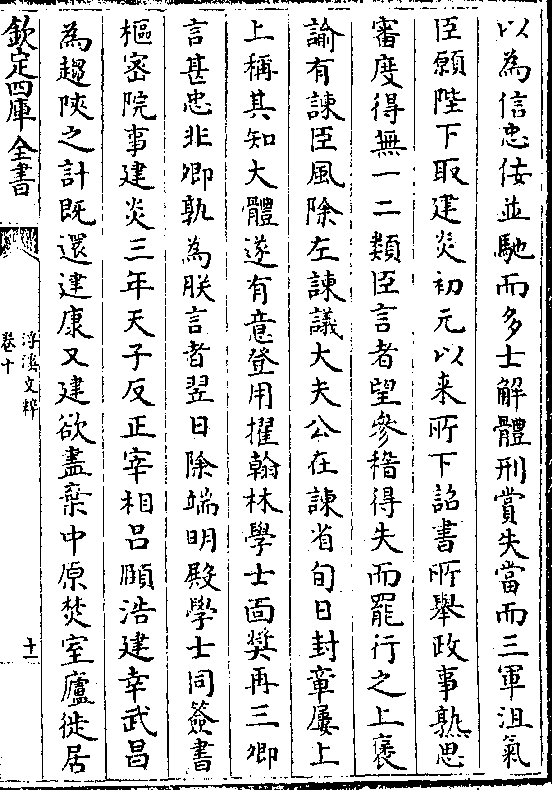 以為信忠佞並馳而多士解體刑賞失當而三軍沮氣
臣願陛下取建炎初元以来所下詔書所舉政事熟思
審度得無一二類臣言者望參稽得失而罷行之上褒
諭有諫臣風除左諫議大夫公在諫省旬日封章屢上
上稱其知大體遂有意登用擢翰林學士面奬再三卿
言甚忠非卿孰為朕言者翌日除端明殿學士同簽書
樞密院事建炎三年天子反正宰相吕頤浩建幸武昌
為趨陜之計既還建康又建欲盡棄中原焚室廬徙居
欽定四庫全書
浮溪文粹
卷十
十一